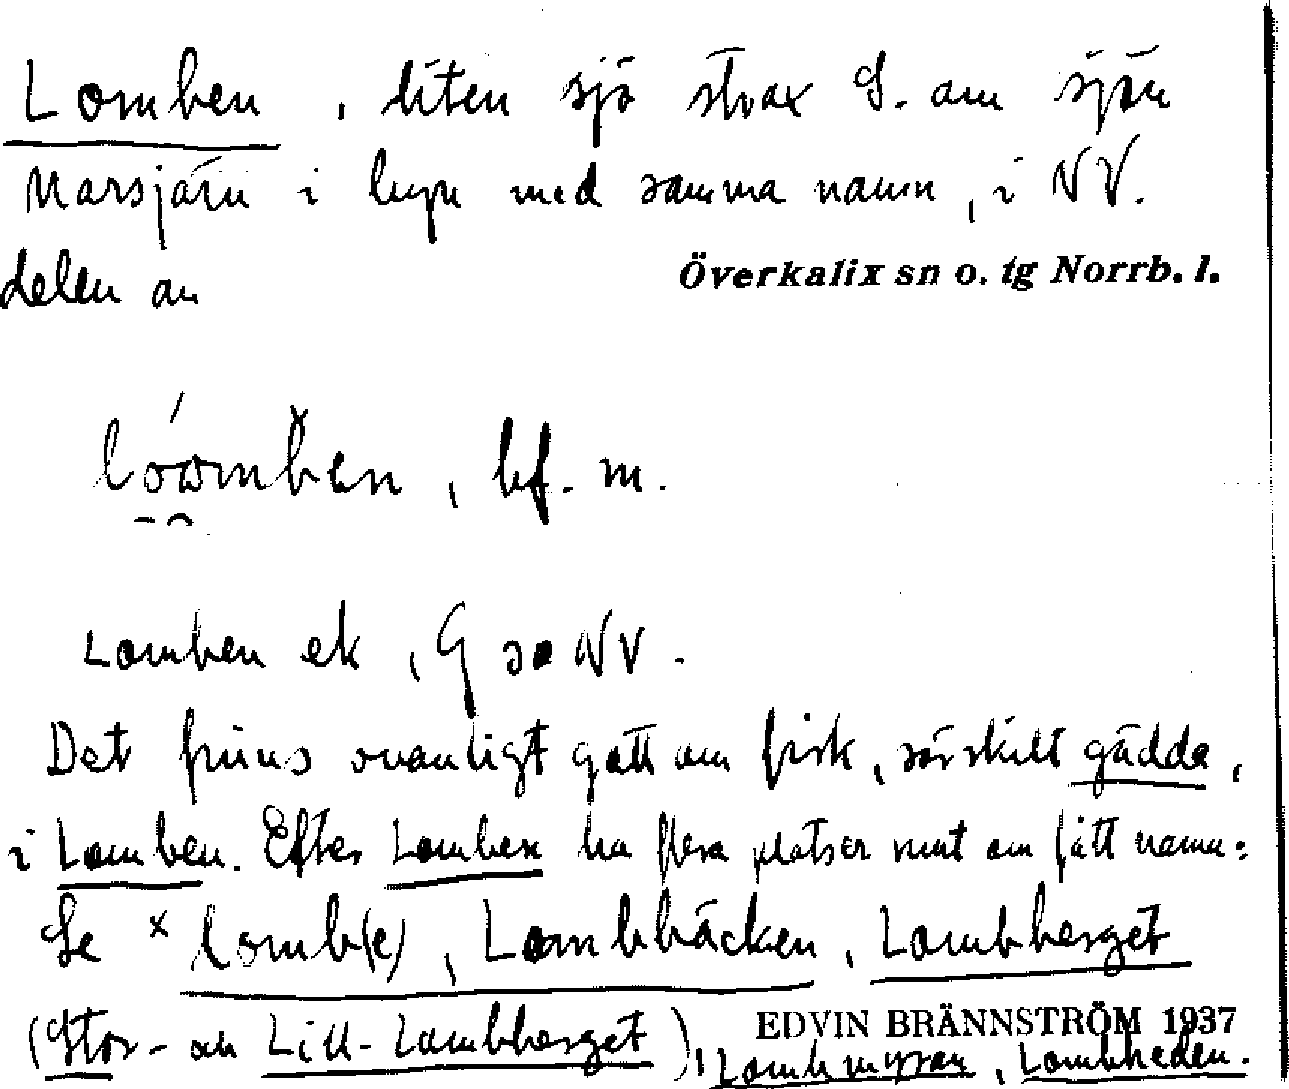 Lomben, liten sjö strax S. om sjön
Narsjärv i byn med samma namn, i NV.
delen av Överkalix sn o. tg Norrb. l.
lóomben, bf. m.
Lomben ek, G so NV.
Det finns ovanligt gott om fisk, särskilt gädda,
i Lomben. Efter Lomben ha flera platser runt om fått namn:
Se × lomb(e), Lombbäcken, Lombberget
(Stor- och Lill-Lombberget), Lombmyran, Lombheden.
EDVIN BRÄNNSTRÖM 1937